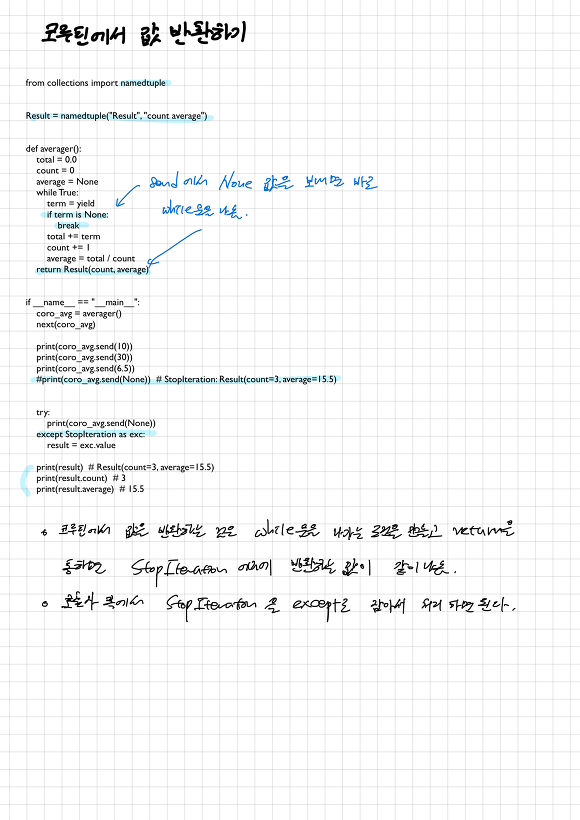 코루틴에서 값 반환하기
from collections import namedtuple
Result = namedtuple("Result", "count average")
def averager():
total = 0.0
count = 0
average = None
while True:
term = yield
if term is None:
break
total += term
count += 1
average = total / count
return Result(count, average)
send 에서 None 값을 보내면 바로
while문을 나옴.
if __name__ == "__main__":
coro_avg = averager()
next(coro_avg)
print(coro_avg.send(10))
print(coro_avg.send(30))
print(coro_avg.send(6.5))
#print(coro_avg.send(None)) # StopIteration: Result(count=3, average=15.5)
try:
print(coro_avg.send(None))
except StopIteration as exc:
result = exc.value
print(result) # Result(count=3, average=15.5)
print(result.count) # 3
print(result.average) # 15.5
코루틴에서 값을 반환하는 것은 while 문을 나가는 로직을 만들고 return을
통하면 StopIteration 에러에 반환하는 값이 같이 나옴.
호출자 쪽에서 StopIteration 을 except로 잡아서 처리 하면 된다.